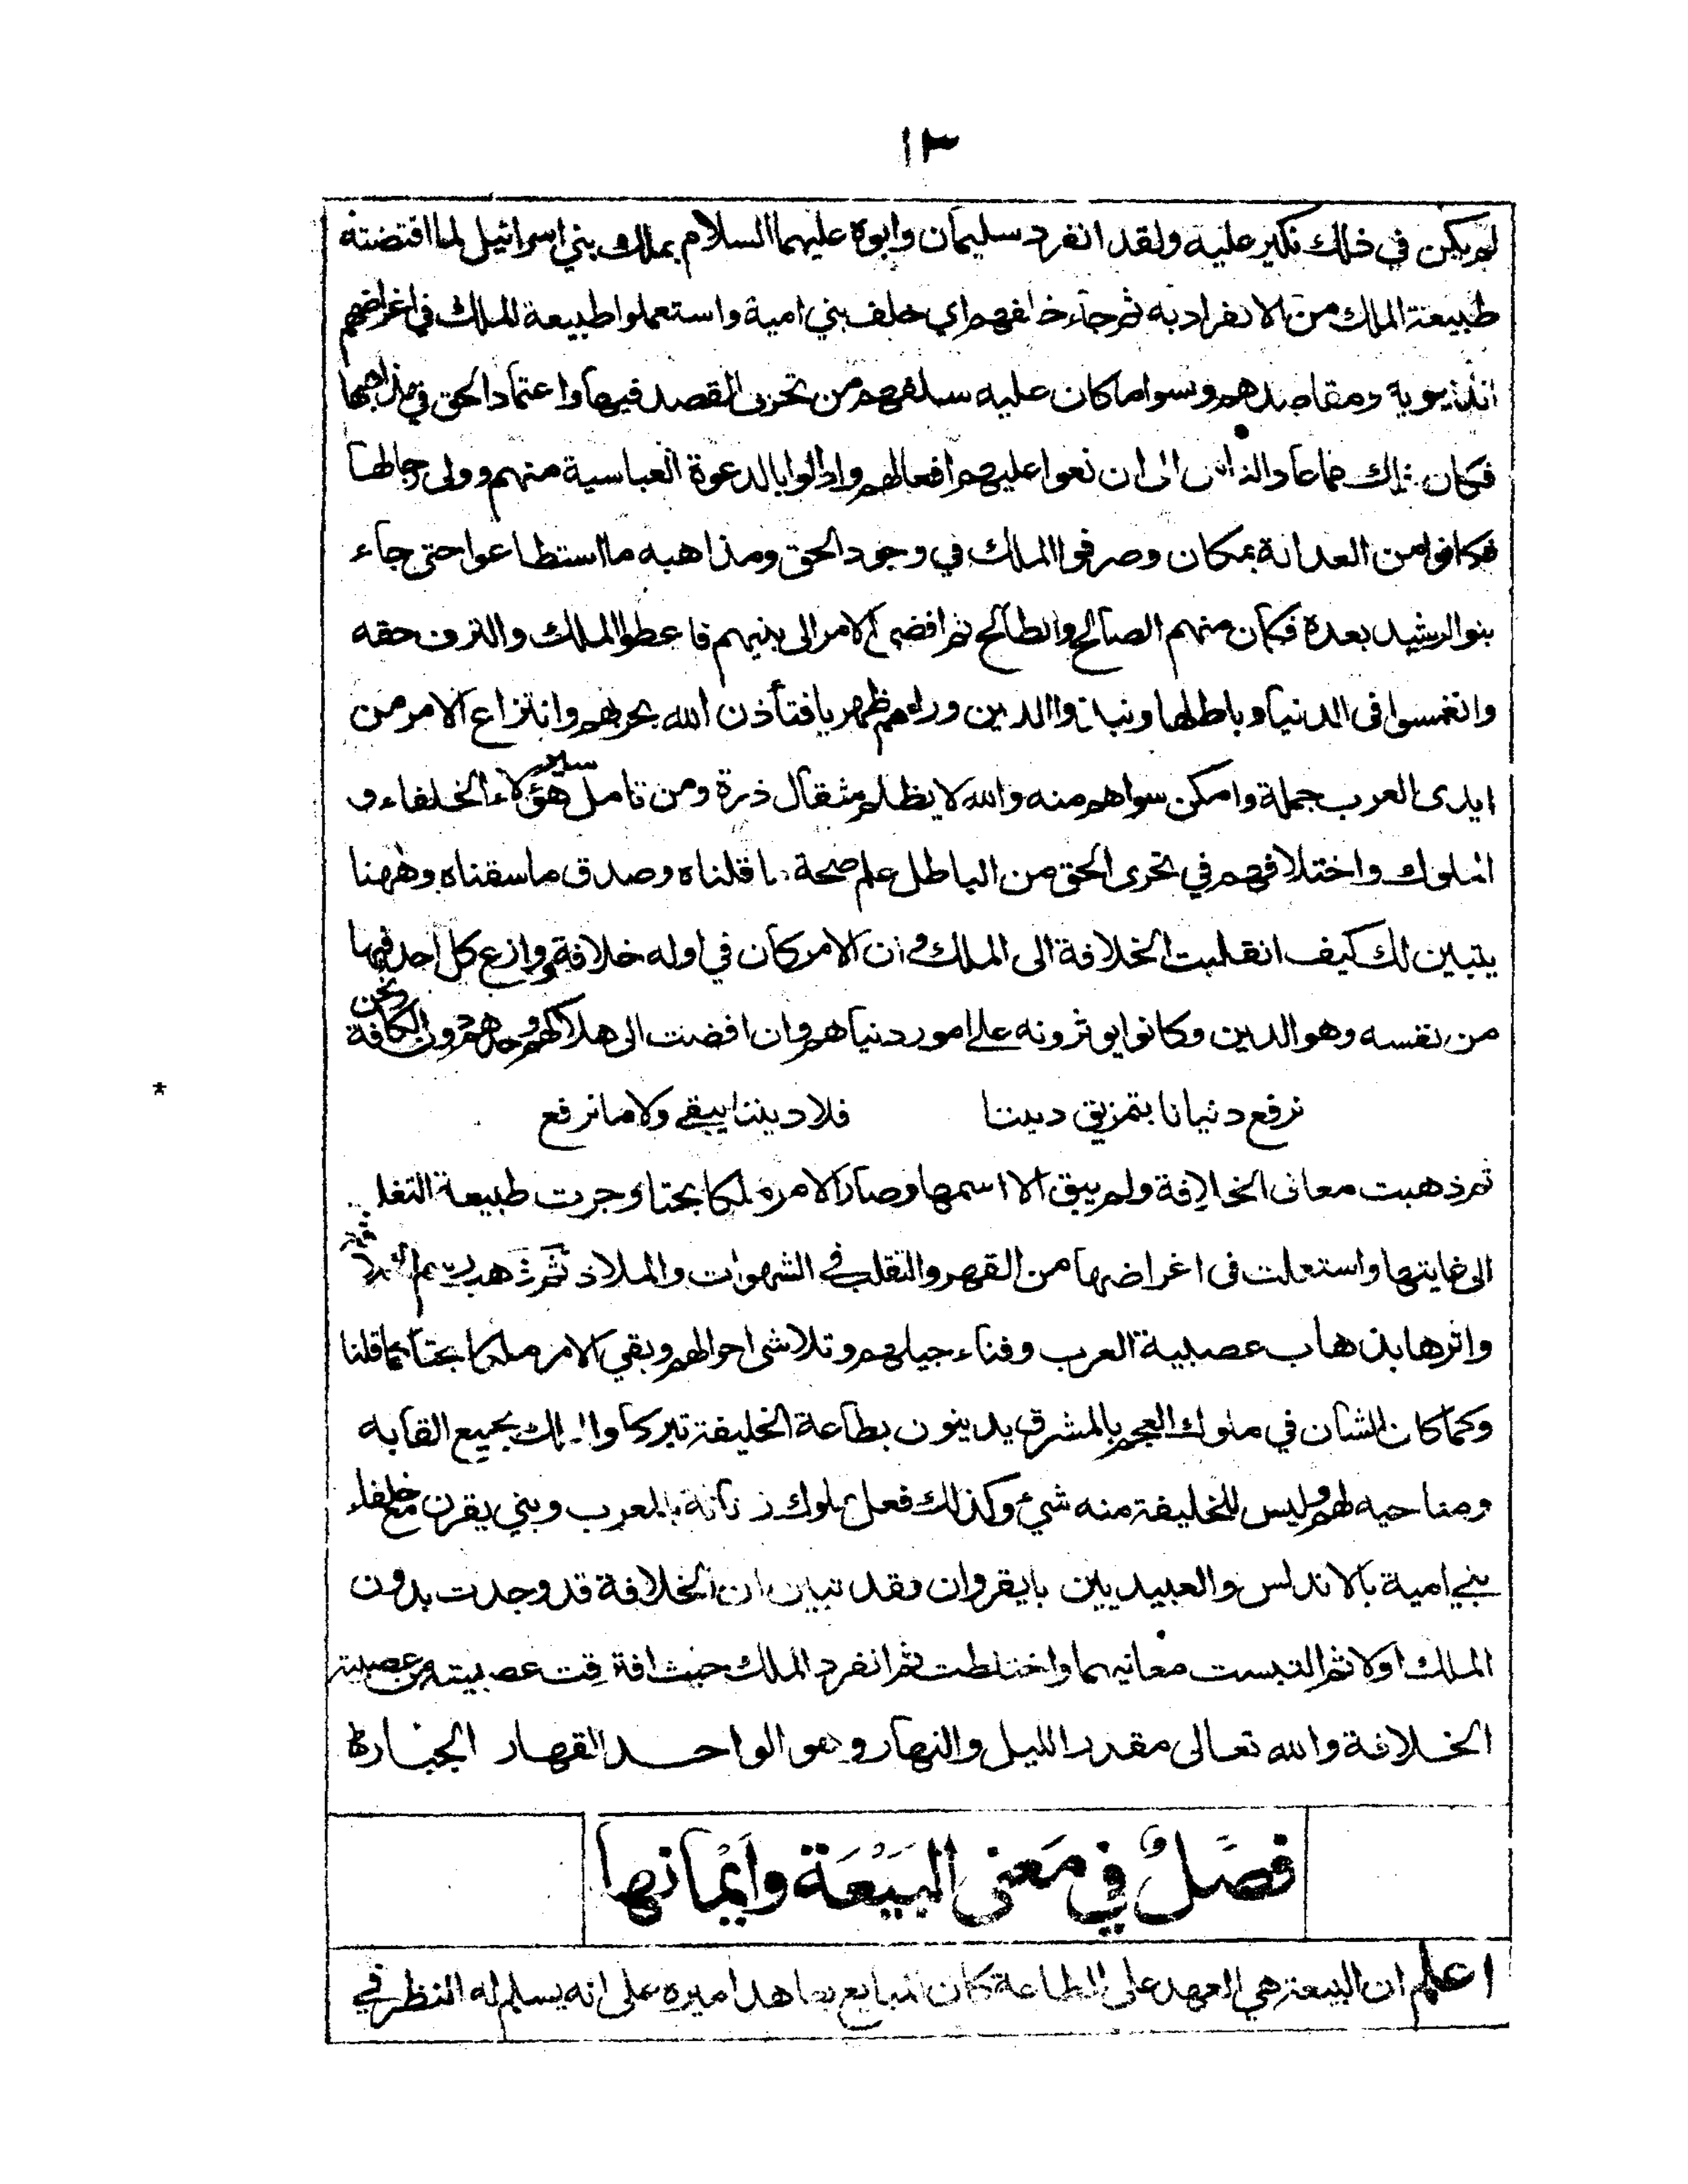 ١٣
لم يكن في ذلك نكير عليه ولقد انفرد سليمان وابوه عليهما السلام بملك بني اسرائيل لما اقتضته
طبيعة الملك من الانفراد به ثم جاء خلفهم اي خلف بني امية واستعملوا طبيعة الملك في اغراضهم
الدنيوية ومقاصدهم ونسوا ما كان عليه سلفهم من تحرى القصد فيها واعتماد الحق في مذاهبها
فكان ذلك مما عاد الناس الى ان نعوا عليهم افعالهم وادالوا بالدعوة العباسية منهم وولى رجالها
فكانوا من العدالة بمكان وصرفوا الملك في وجود الحق ومذاهبه ما استطاعوا حتى جاء
بنو الرشيد بعده فكان منهم الصالح والطالح ثم افضى الامر الى بنيهم فاعطوا الملك والترف حقه
وانغمسوا فى الدنيا وباطلها ونبذوا الدين وراءهم ظهريا فتأذن الله بحربهم وانتزاع الامر من
ايدى العرب جملة وامكن سواهم منه والله لا يظلم مثقال ذرة ومن تامل سير هؤلاء الخلفاء و
الملوك واختلافهم في تحرى الحق من الباطل علم صحة ما قلناه وصدق ما سقناه وههنا
يتبين لك كيف انقلبت الخلافة الى الملك وان الامر كان في اوله خلافة ووازع كل احد فيها
من نفسه وهو الدين وكانوا يوثرونه على امور دنياهم وان افضت الى هلاكهم وحدهم دون الكافة نحن
نرفع دنيانا بتمزيق ديننا فلا ديننا يبقى ولا ما نرفع
*
ثم ذهبت معانى الخلافة ولم يبق الا اسمها وصار الامر ملكا بحتا وجرت طبيعة التغلب
الى غايتها واستعملت فى اغراضها من القهر والتقلب في الشهوات والملاذ ثم ذهب رسم الخلافة
واثرها بذهاب عصبية العرب وفناء جيلهم وتلاشى احوالهم وبقي الامر ملكا بحتا كما قلنا
وكما كان الشان في ملوك العجم بالمشرق يدينون بطاعة الخليفة تبركا والملك بجميع القابه
ومناحيه لهم وليس للخليفة منه شيء وكذلك فعل ملوك زناتة بالمغرب وبني يقرن مع خلفاء
بني امية بالاندلس والعبيديين بالقيروان فقد تبين ان الخلافة قد وجدت بدون
الملك اولا ثم التبست معانيهما واختلطت ثم انفرد الملك حيث افترقت عصبيته من عصبية
الخلافة والله تعالى مقدر الليل والنهار وهو الواحد القهار الجبار
فَصْلٌ فِي مَعنى البَيْعَة وَايْمَانها
اعلم ان البيعة هي العهد على الطاعة كان المبايع يعاهد اميره على انه يسلم له النظر في